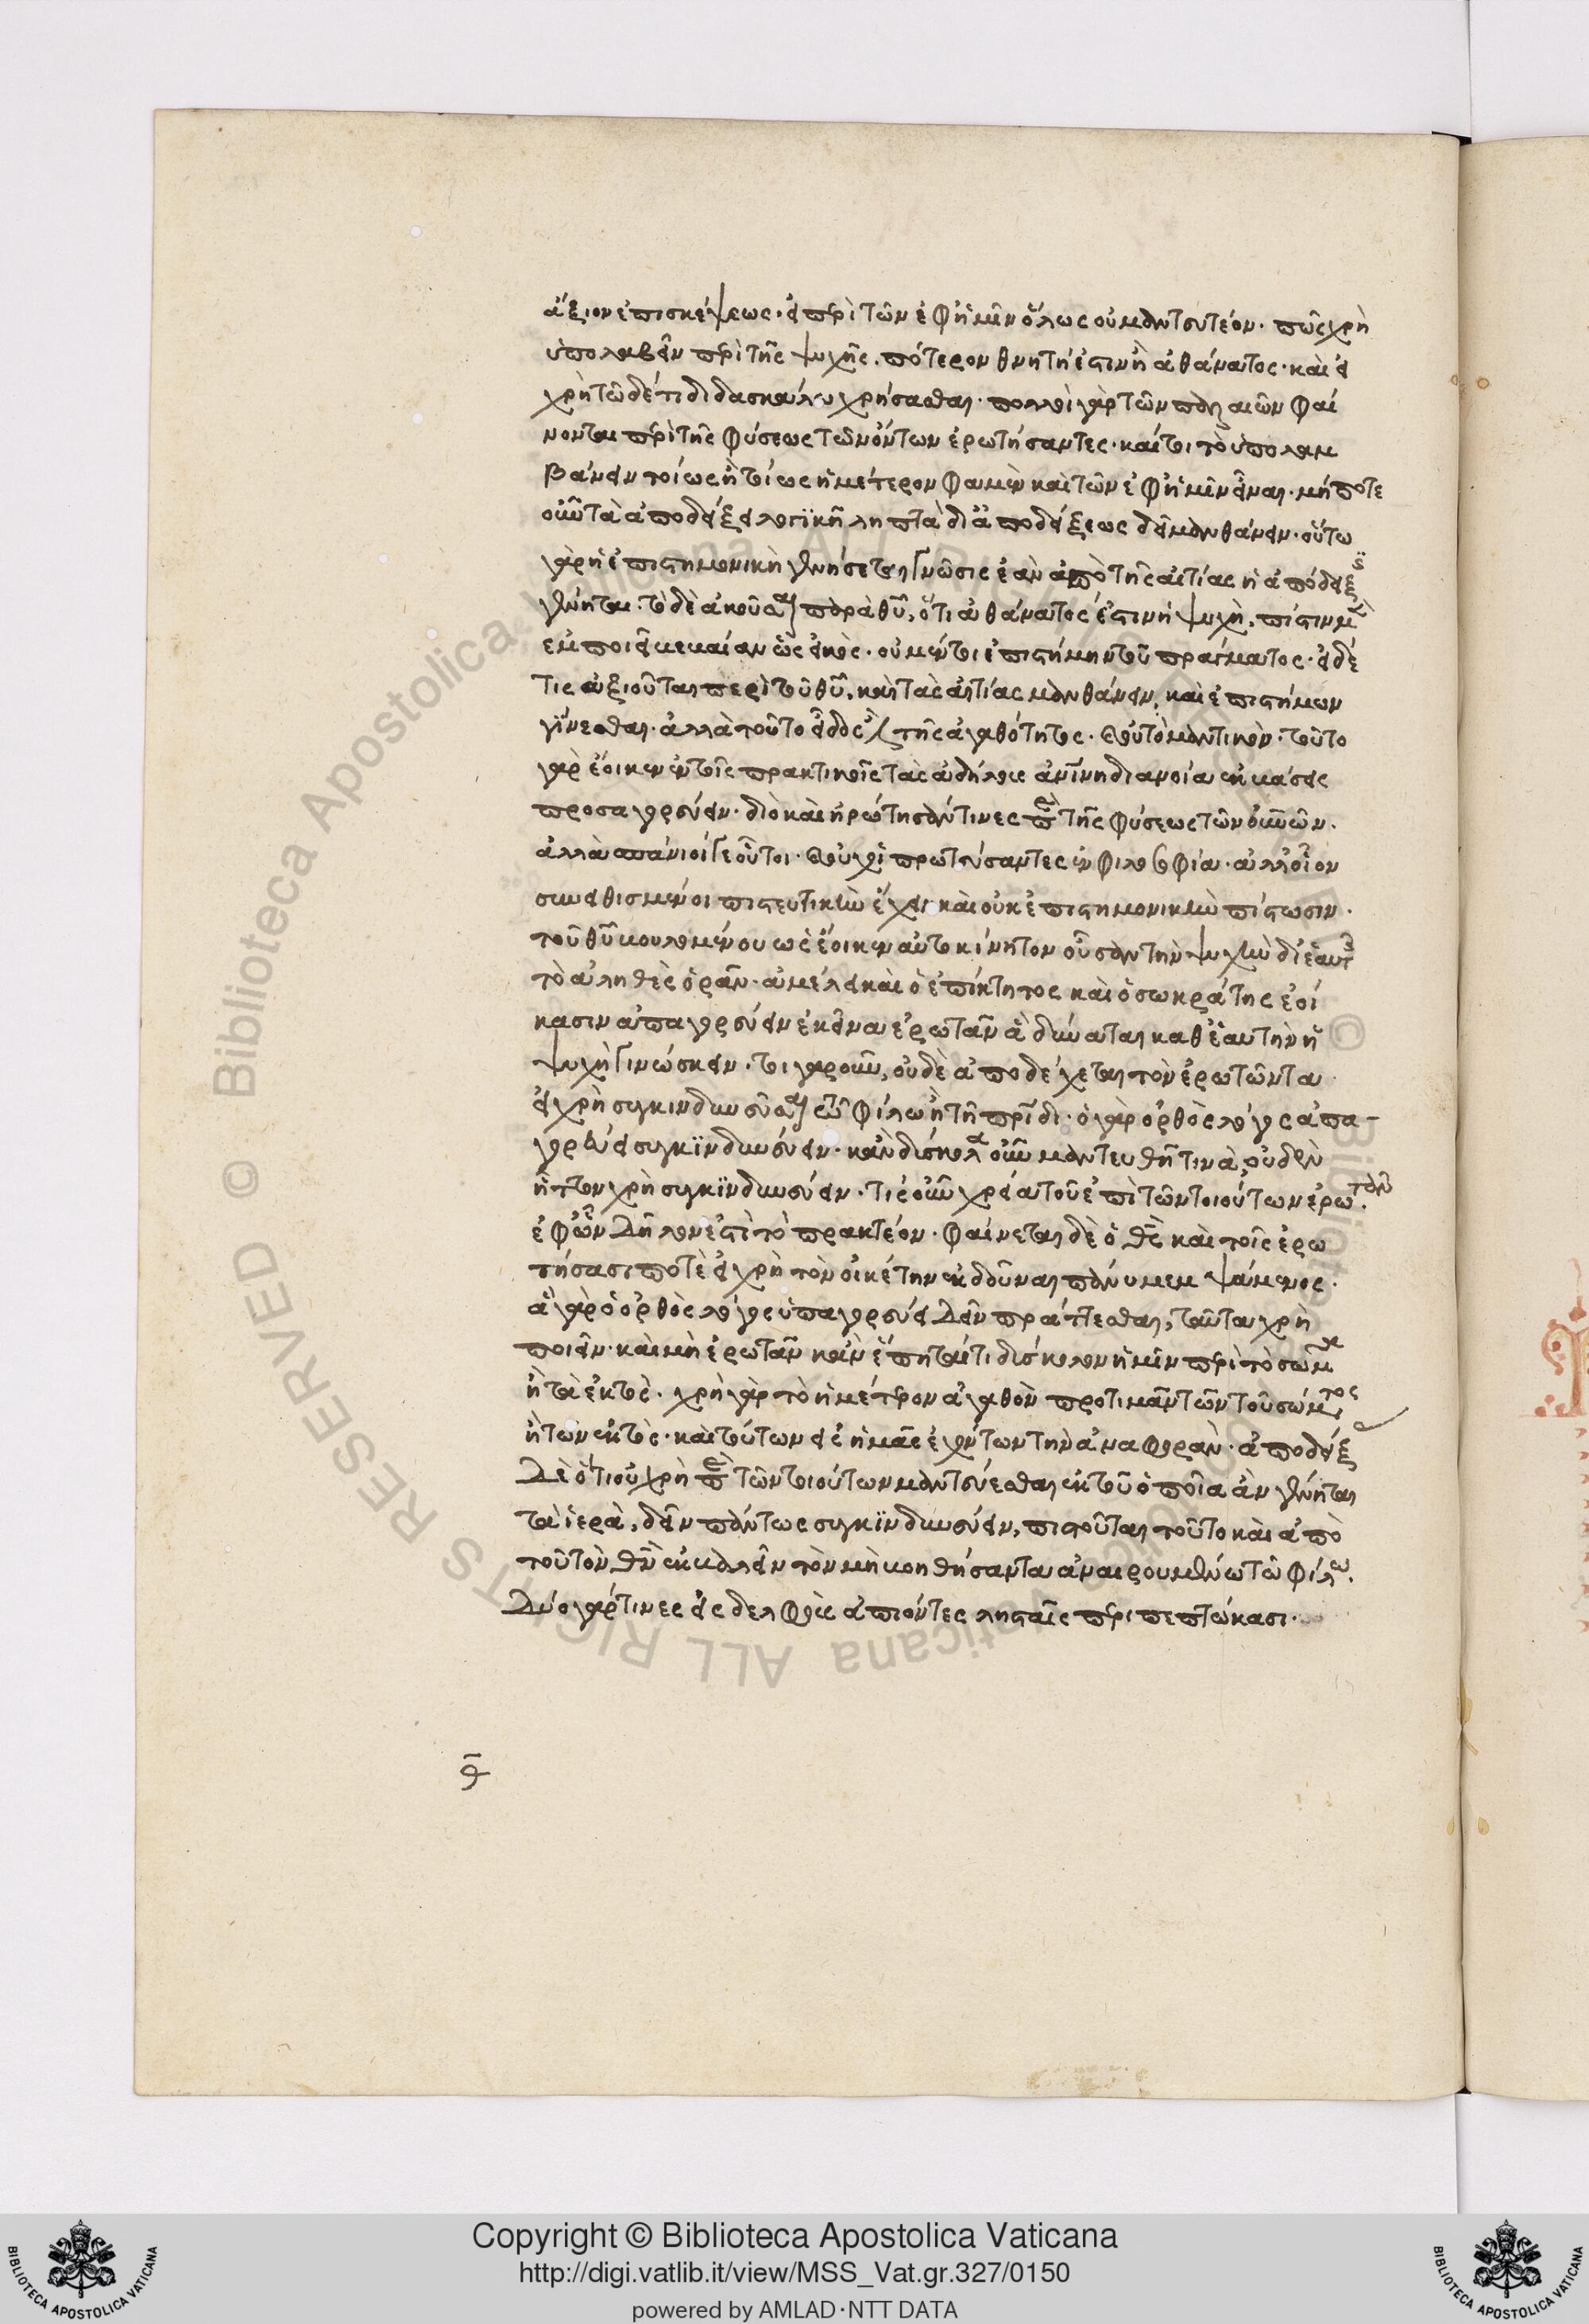 ἄξιον ἐπισκέψεως. εἰ περὶ τῶν ἐφ' ἡμῖν ὅλως οὐ μαντευτέον. πῶς χρὴ
ὑπολαβεῖν περὶ τῆς ψυχῆς. πότερον θνητή ἐστιν ἢ ἀθάνατος. καὶ εἰ
χρὴ τῶδέ τι διδασκάλω χρήσασθαι. πολλοὶ γὰρ τῶν παλαιῶν φαί
νονται περὶ τῆς φύσεως τῶν ὄντων ἐρωτήσαντες. καίτοι τὸ ὑπολαμ
βάνειν τοίως ἢ τοίως ἡμέτερον φαμὲν καὶ τῶν ἐφ' ἡμῖν εἶναι. μήποτε
οὖν τὰ ἀποδείξει λογικῆ ληπτὰ δι' ἀποδείξεως δεῖ μανθάνειν. οὕτω
γὰρ ἡ ἐπιστημονικὴ γενήσεται γνῶσις ἐὰν ἀπὸ τῆς αἰτίας ἡ ἀπόδειξις
γένηται. τὸ δὲ ἀκοῦσαι παρὰ θῦ, ὅτι ἀθάνατος ἐστιν ἡ ψυχὴ. πίστιν μὲν
ἐμποιεῖ βεβαίαν ὡς εἰκὸς. οὐ μέντοι ἐπιστήμην τοῦ πράγματος. εἰ δέ
τις ἀξιοῦται περὶ τοῦ θῦ, καὶ τὰς αἰτίας μανθάνειν, καὶ ἐπιστήμων
γίνεσθαι. ἀλλὰ τοῦτο εἶδος ἄλλο τῆς ἀγαθότητος. οὐ τὸ μαντικὸν. τοῦτο
γὰρ ἔοικεν ἐν τοῖς πρακτικοῖς τὰς ἀδήλους ἀνινη διανοία ἐκβάσεις
προσαγορεύειν. διὸ καὶ ἠρώτησάν τινες περὶ τῆς φύσεως τῶν ὄντων.
ἀλλὰ σπάνιοί γε οὗτοι. οὐχ οἱ πρωτεύσαντες ἐν φιλοσοφία. ἀλλ' οἷον
συνειθισμένοι πιστευτικὴν ἔχει καὶ οὐκ ἐπιστημονικὴν πίστωσιν.
τοῦ θῦ βουλομένου ὡς ἔοικεν αὐτοκίνητον οὖσαν τὴν ψυχὴν δι' ἑαυτῆς
τὸ ἀληθὲς ὁρᾶν. ἀμέλει καὶ ὁ ἐπίκτητος καὶ ὁ σωκράτης ἐοί
κασιν ἀπαγορεύειν ἐκεῖνα ἐρωτᾶν ἃ δύναται καθ' ἑαυτὴν ἡ
ψυχὴ γινώσκειν. τί γὰρ οὖν, οὐδὲ ἀποδέχεται τὸν ἐρωτῶντα
εἰ χρὴ συγκινδυνεῦσαι τῶ φίλω ἢ τῆ πρίδι. ὁ γὰρ ὀρθὸς λόγος ἀπα-
γορεύει συγκινδυνεύειν. κἂν δύσκολα οὖν μαντευθῆ τινὰ, οὐδὲν
ἧττον χρὴ συγκινδυνεύειν. τίς οὖν χρεία τοῦ ἐπὶ τῶν τοιούτων ἐρωτᾶν.
ἐφ' ὧν δῆλον ἐστὶ τὸ πρακτέον. φαίνεται δὲ ὁ θς καὶ τοῖς ἐρω
τήσασι ποτὲ εἰ χρὴ τὸν οἰκέτην ἐκδοῦναι πάνυ μεμψάμενος.
ἃ γὰρ ὁ ὀρθὸς λόγος ὑπαγορεύει δεῖν πράττεσθαι, ταῦτα χρὴ
ποιεῖν. καὶ μὴ ἐρωτᾶν κἂν ἕπηταί τι δύσκολον ἡμῖν περὶ τὸ σῶμα
ἢ τὰ ἐκτὸς. χρὴ γὰρ τὸ ἡμέτερον ἀγαθὸν προτιμᾶν τῶν τοῦ σώματος
ἢ τῶν ἐκτὸς. καὶ τούτων εἰς ἡμᾶς ἐχόντων τὴν ἀναφορὰν. ἀποδείξει
δὲ ὅτι οὐ χρὴ περὶ τῶν τοιούτων μαντεύεσθαι ἐκ τοῦ ὁποῖα ἂν γένηται
τὰ ἱερὰ, δεῖν πάντως συγκινδυνεύειν, πιστοῦται τοῦτο καὶ ἀπὸ
τοῦ τὸν θν ἐκβαλεῖν τὸν μὴ βοηθήσαντα ἀναιρουμένω τῶ φίλω.
Δύο γάρ τινες εἰς δελφοὺς ἀπιόντες λησταῖς περιπεπτώκασι.
θ
Copyright © Biblioteca Apostolica Vaticana
http://digi.vatlib.it/view/MSS_Vat.gr.327/0150
powered by AMLAD·NTT DATA
BIBLIOTECA APOSTOLICA VATICANA
BIBLIOTECA APOSTOLICA VATICANA